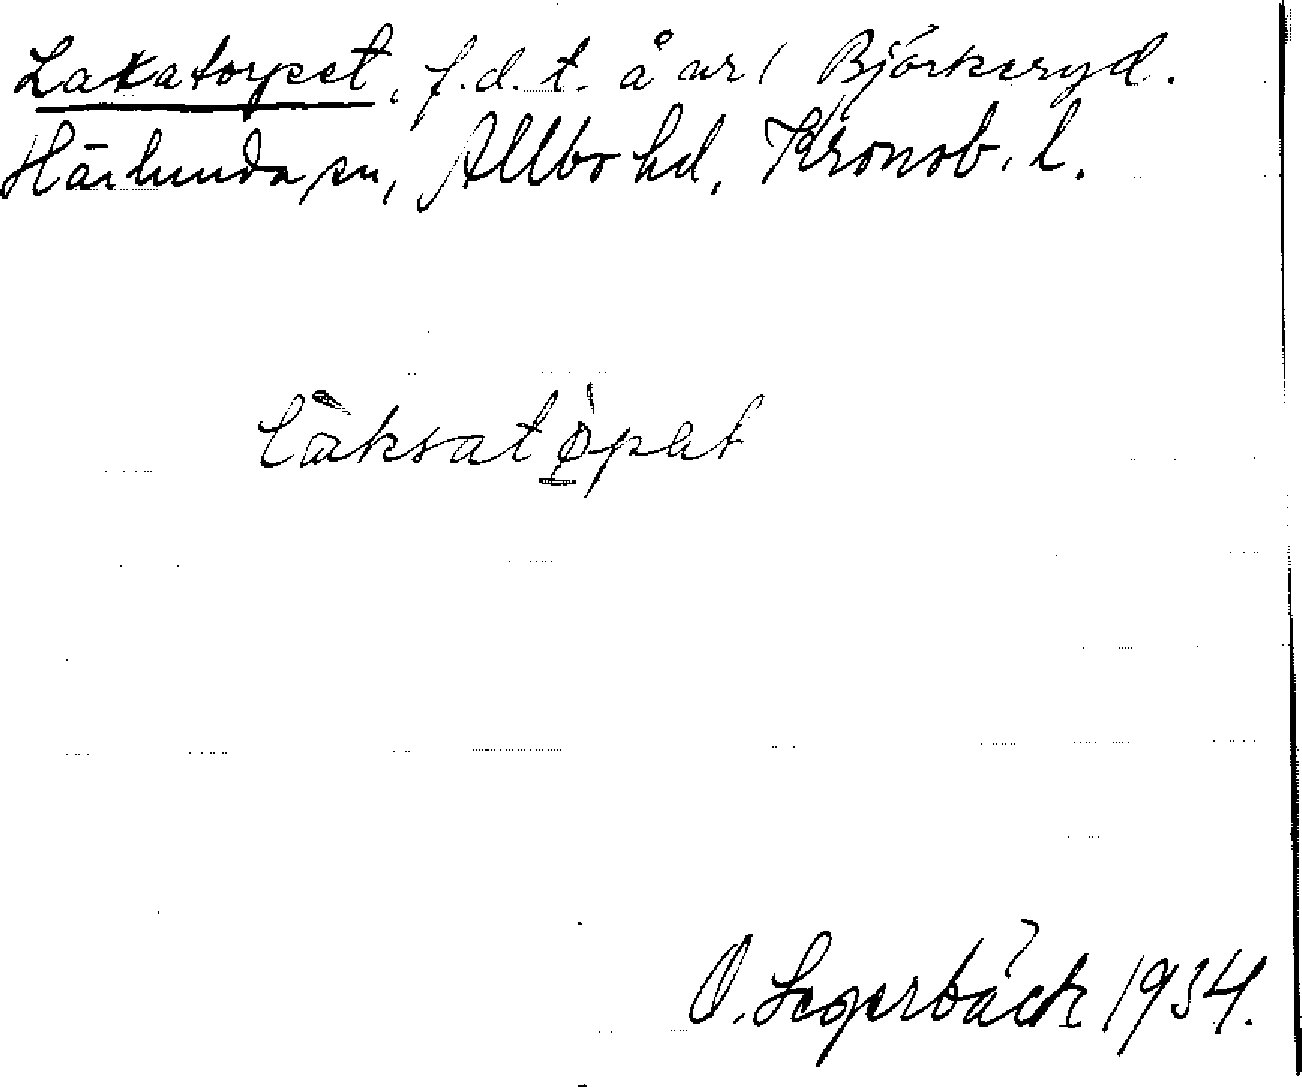 Laxatorpet, f.d.t. å nr 1 Björkeryd.
Härlunda sn, Allbo hd, Kronob. l.
làksatò̱pet
O. Segerbäck 1934.